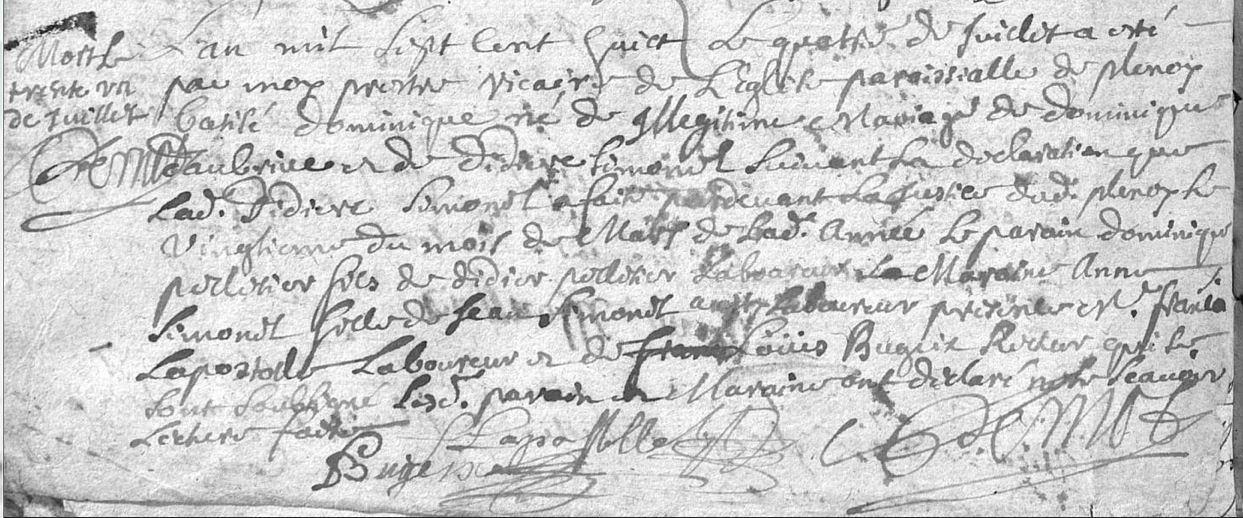 Mort le
trente un
de Juillet
L'an mil sept cent huict le quatre de Juillet a eté
par moy prestre vicaire de L'Eglise paroissialle de plenoy
batisé dominique né de Illegitime Mariage de dominique
aubrice et de didiere simonel suivant la declaration que
Lad. Didiere Simonel a fait pardevant La justice dud. plenoy le
vingtieme du mois de Mars de Lad. Année Le parain dominique
pelletier fils de didier pelletier Laboureur La Maraine Anne
simonel fille de Jean simonel aussy Laboureur presence
Lapostolle Laboureur et de Loüis Buguet Recteur qui se
sont soubsigné Lesd. parain et Maraine ont declaré scavoir
Lecture faite
Lapostolle